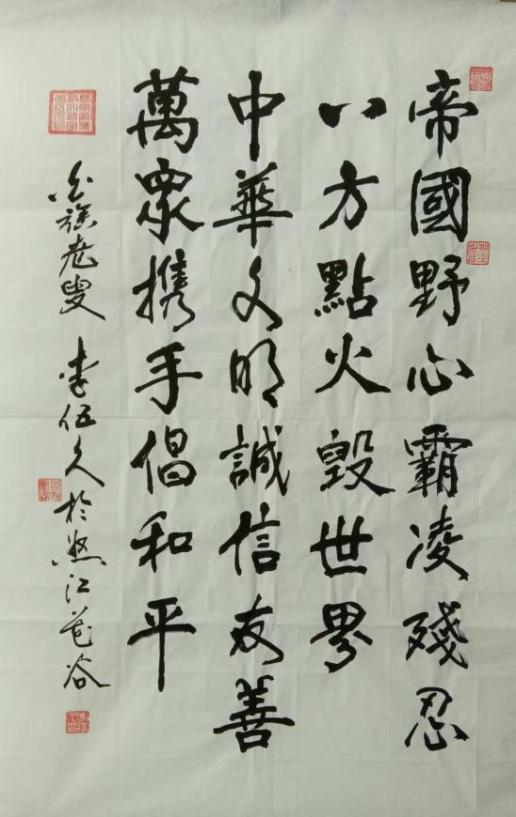 帝國野心霸凌殘忍
八方點火毀世界
中華文明誠信友善
萬衆携手倡和平
白族老叟 李伍久 於怒江花谷